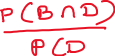 P(B∩D)
P(D